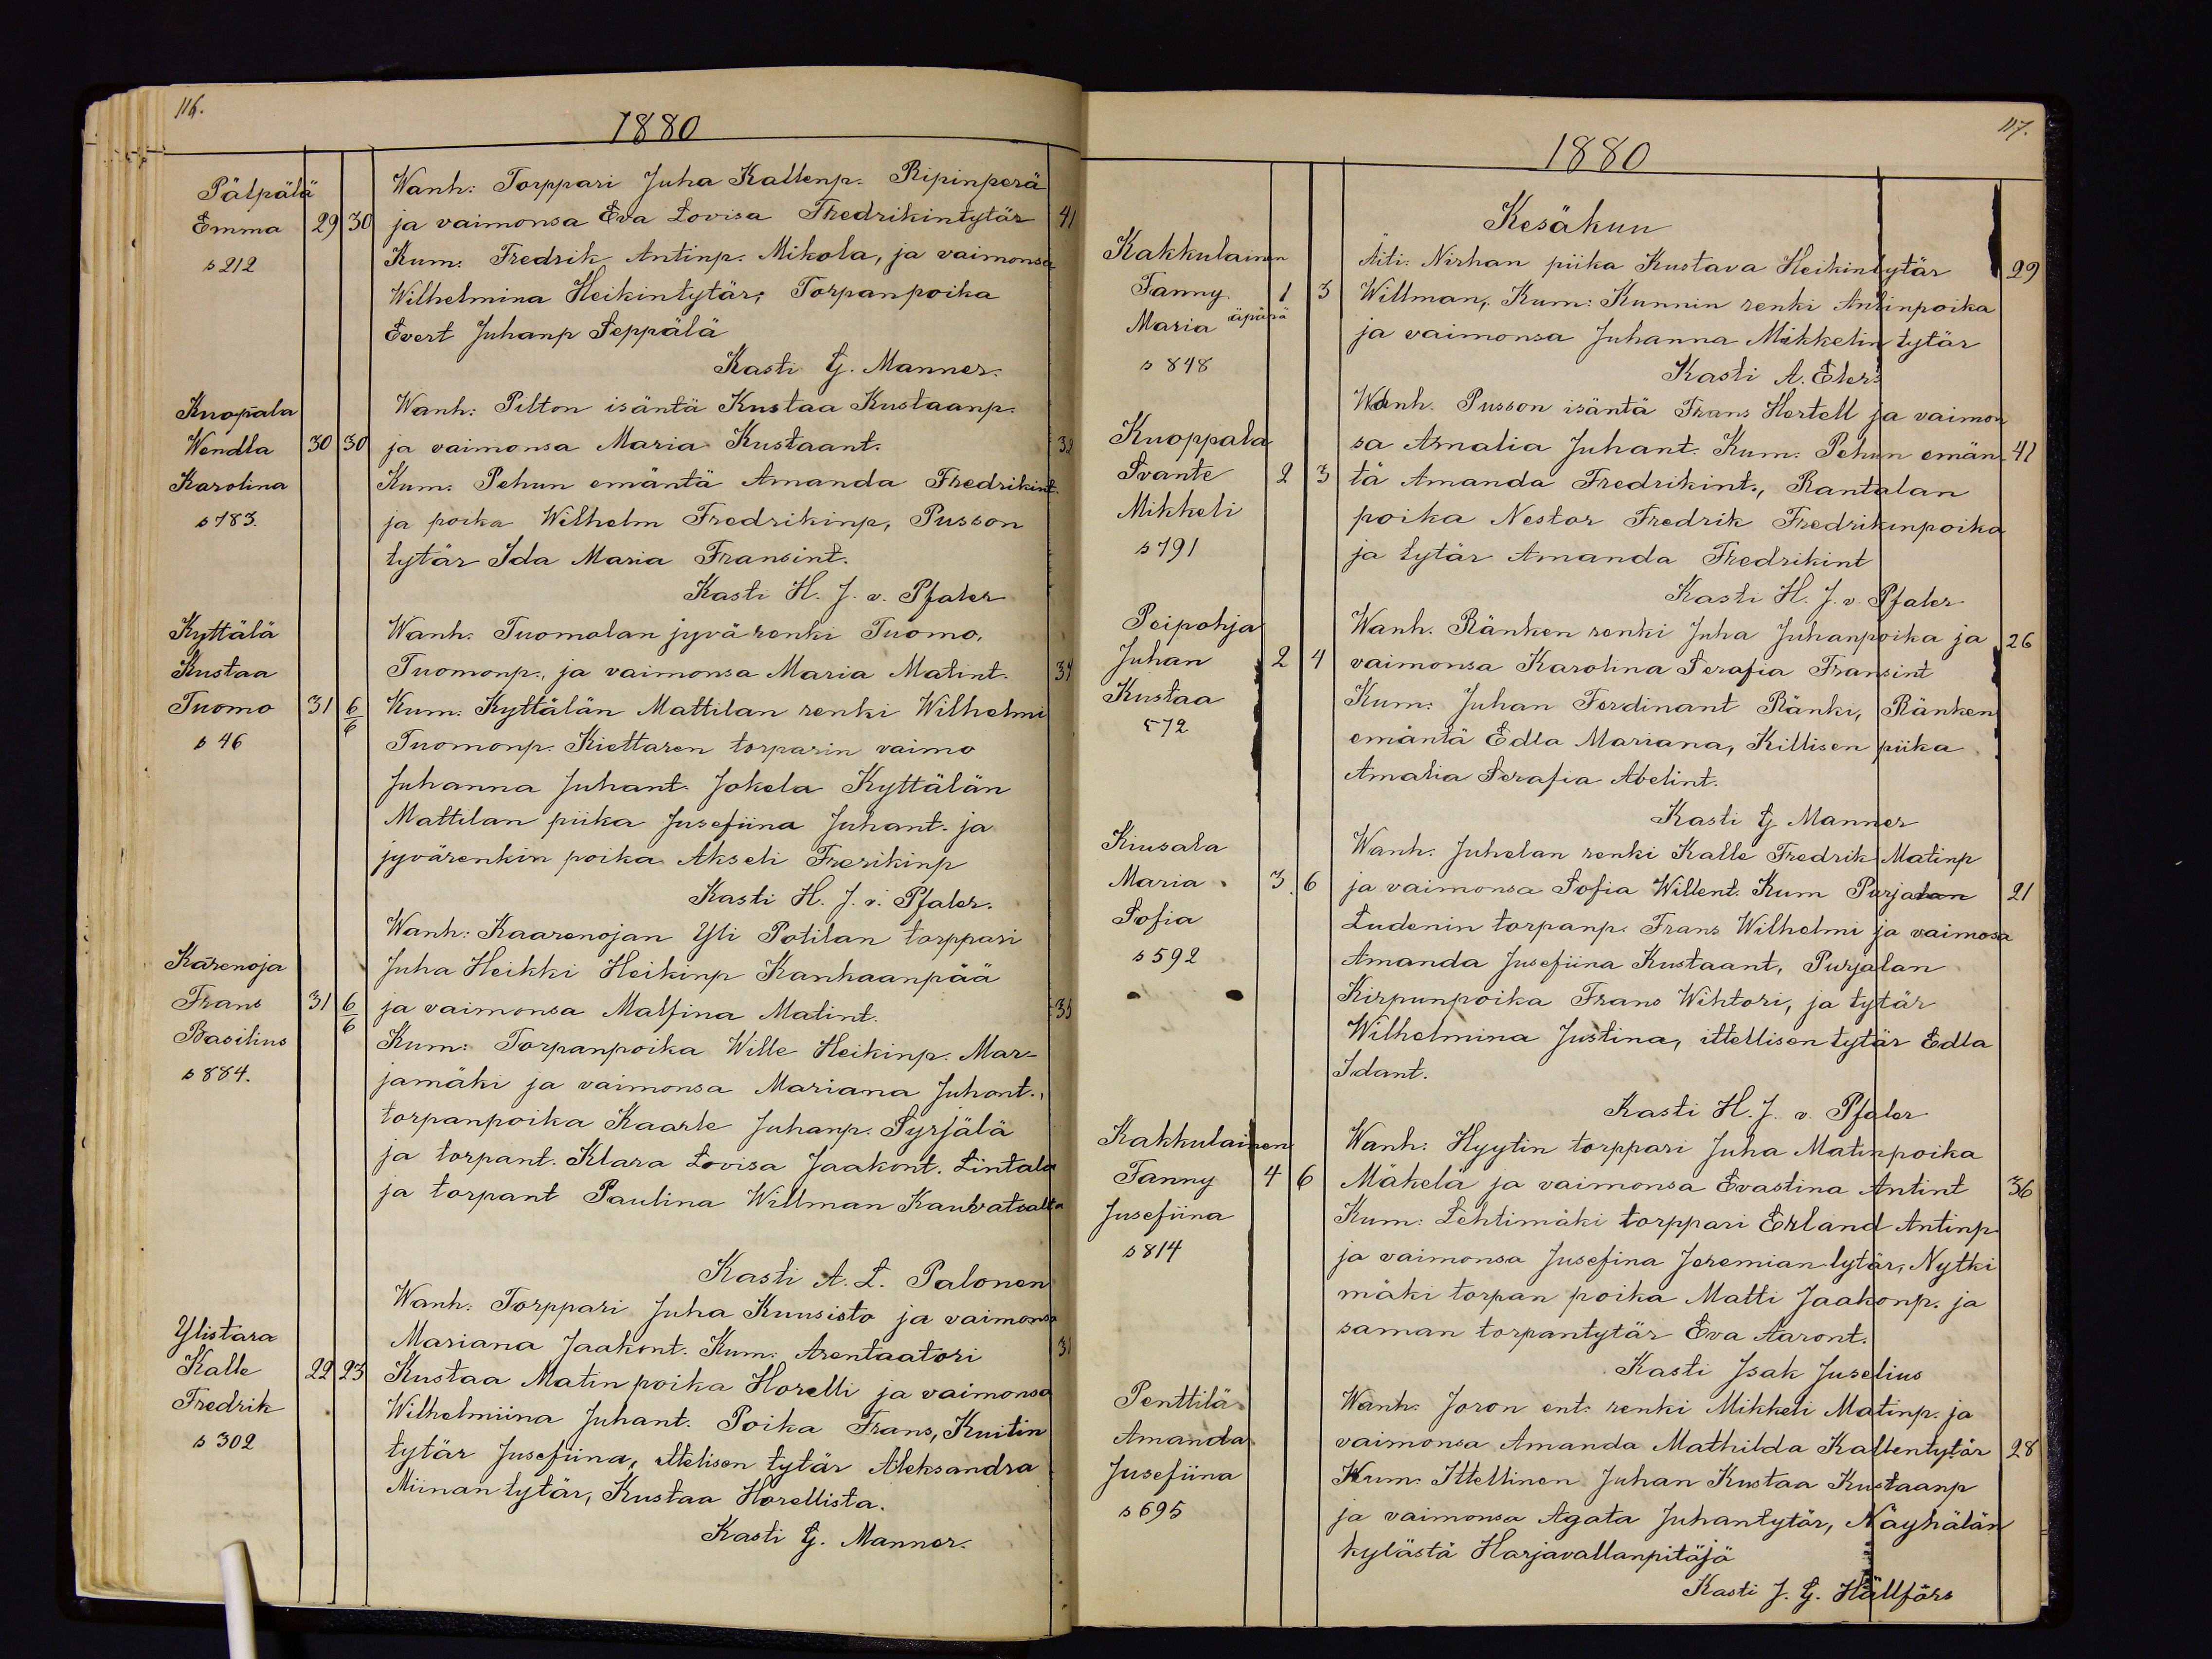 116.
1880
Pälpälä
Emma 29 30
s 212
Wanh: Torppari Juha Kallenp. Ripinperä
ja vaimonsa Eva Lovisa Fredrikintytär 41
Kum: Fredrik Antinp. Mikola, ja vaimonsa
Wilhelmina Heikintytär; Torpanpoika
Evert Juhanp Seppälä
Kasti G. Manner.
Kuopala
Wendla 30 30
Karolina
s 783.
Wanh: Pilton isäntä Kustaa Kustaanp.
ja vaimonsa Maria Kustaant. 32
Kum: Pehun emäntä Amanda Fredrikint.
ja poika Wilhelm Fredrikinp, Pusson
tytär Ida Maria Fransint.
Kasti H. J. v. Pfaler
Kyttälä
Kustaa
Tuomo 31 6/6
s 46
Wanh: Tuomolan jyvä renki Tuomo,
Tuomonp., ja vaimonsa Maria Matint.
Kum: Kyttälän Mattilan renki Wilhelmi
Tuomonp. Kiettaren torparin vaimo
Juhanna Juhant. Jokela Kyttälän
Mattilan piika Jusefiina Juhant. ja
jyvärenkin poika Akseli Frerikinp
Kasti H. J. v. Pfaler.
Karenoja
Frans 31 6/6
Basilius
s 884.
Wanh: Kaarenojan Yli Potilan torppari
Juha Heikki Heikinp Kankaanpää
ja vaimonsa Malfina Matint. 33
Kum: Torpanpoika Wille Heikinp. Mar-
jamäki ja vaimonsa Mariana Juhont.,
torpanpoika Kaarle Juhanp. Syrjälä
ja torpant. Klara Lovisa Jaakont. Lintala
ja torpant Paulina Willman Kauvatsalta
Kasti A. L. Palonen
Ylistara
Kalle 22 23
Fredrik
s 302
Wanh: Torppari Juha Kuusisto ja vaimonsa
Mariana Jaakont. Kum: Arentaatori 31
Kustaa Matin poika Horelli ja vaimonsa
Wilhelmiina Juhant. Poika Frans, Kuitin
tytär Jusefiina, ittelisen tytär Aleksandra
Miinan tytär, Kustaa Horellista.
Kasti G. Manner.
117.
1880
Kesäkuu
Kakkulainen
Fanny 1 3
Maria äpärä
s 848
Äiti: Nirhan piika Kustava Heikintytär 29
Willman, Kum: Kunnin renki Antinpoika
ja vaimonsa Juhanna Mikkelin tytär
Kasti A. Elers
Kuoppala
Svante 2 3
Mikkeli
s 791
Wanh. Pusson isäntä Frans Hertell ja vaimon
sa Amalia Juhant. Kum: Pehun emän 41
tä Amanda Fredrikint., Rantalan
poika Nestor Fredrik Fredrikinpoika
ja tytär Amanda Fredrikint
Kasti H. J. v. Pfaler
Peipohja
Juhan 2 4
Kustaa
572
Wanh. Ränken renki Juha Juhanpoika ja 26
vaimonsa Karolina Serafia Fransint
Kum: Juhan Ferdinant Ränki, Ränken
emäntä Edla Mariana, Killisen piika
Amalia Serafia Abelint.
Kasti G Manner
Kiusala
Maria 3. 6
Sofia
s 592
Wanh. Juhelan renki Kalle Fredrik Matinp
ja vaimonsa Sofia Willent. Kum Purjalan 21
Ludenin torpanp. Frans Wilhelmi ja vaimosa
Amanda Jusefiina Kustaant, Purjalan
Kirpunpoika Frans Wihtori, ja tytär
Wilhelmina Justina, ittellisen tytär Edla
Idant.
Kasti H. J. v. Pfaler
Kakkulainen
Fanny 4 6
Jusefiina
s 814
Wanh: Hyytin torppari Juha Matinpoika
Mäkelä ja vaimonsa Evastina Antint 36
Kum: Lehtimäki torppari Erland Antinp
ja vaimonsa Jusefina Jeremian tytär, Nytki
mäki torpan poika Matti Jaakonp. ja
saman torpantytär Eva Aaront.
Kasti Isak Juselius
Penttilä
Amanda
Jusefiina
s 695
Wanh. Joron ent. renki Mikkeli Matinp. ja
vaimonsa Amanda Mathilda Kallentytär 28
Kum: Ittellinen Juhan Kustaa Kustaanp
ja vaimonsa Agata Juhantytär, Näyhälän
kylästä Harjavallanpitäjä
Kasti J. G. Hällfors